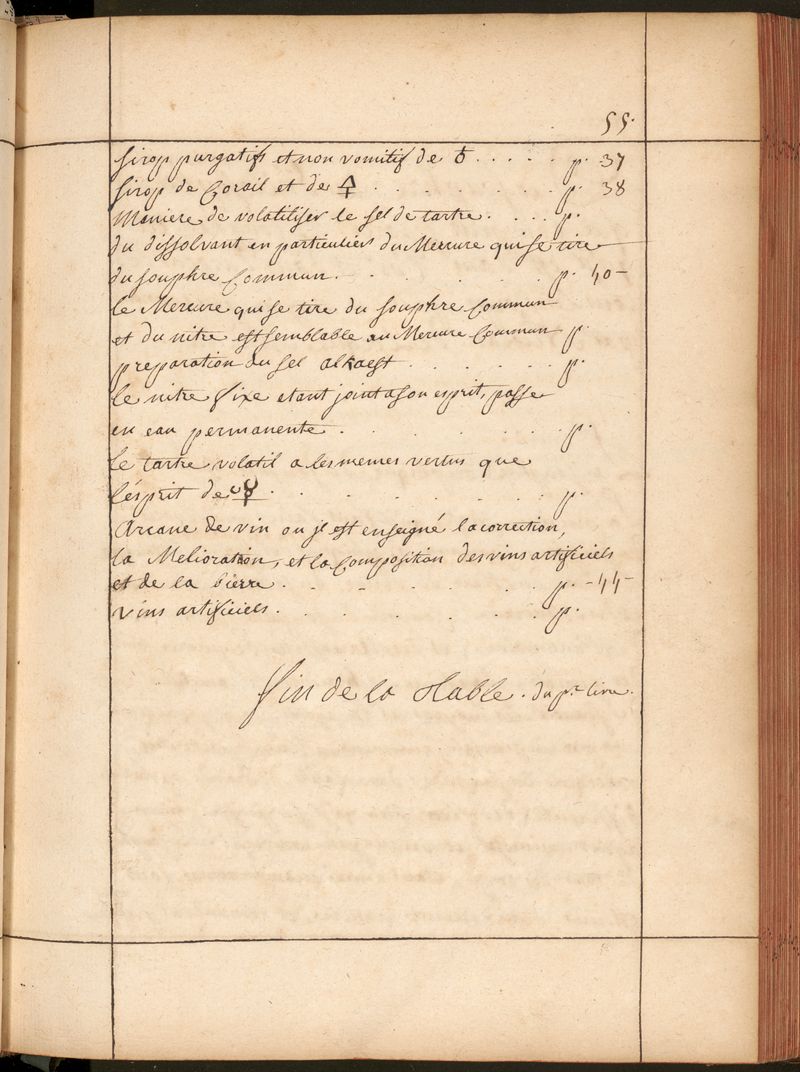 55.
Sirop purgatifs et non vomitif de ♁ . . . . . p. 37
Sirop de Corail et de 🜍 . . . . . . p. 38
Maniere de volatiliser le sel de tartre. . . . p.
du dissolvant en particulier du Mercure qui se tire
du souphre Commun. . . . . . . p. 40-
le Mercure qui se tire du souphre Commun
et du nitre est semblable au Mercure Commun p.
preparation du sel alkaest . . . . . . p.
le nitre fixe etant joint a son esprit, passe
en eau permanente . . . . . . . p.
le tartre volatil a les memes vertus que
l'esprit de . . . . . . . . p.
Arcane de vin ou il est enseigné la correction,
la Melioration, et la Composition des vins artificiels
et de la bierre . . . . . . . p. -44-
vins artificiels. . . . . . . p.
Fin de la Table. du pr. livre.